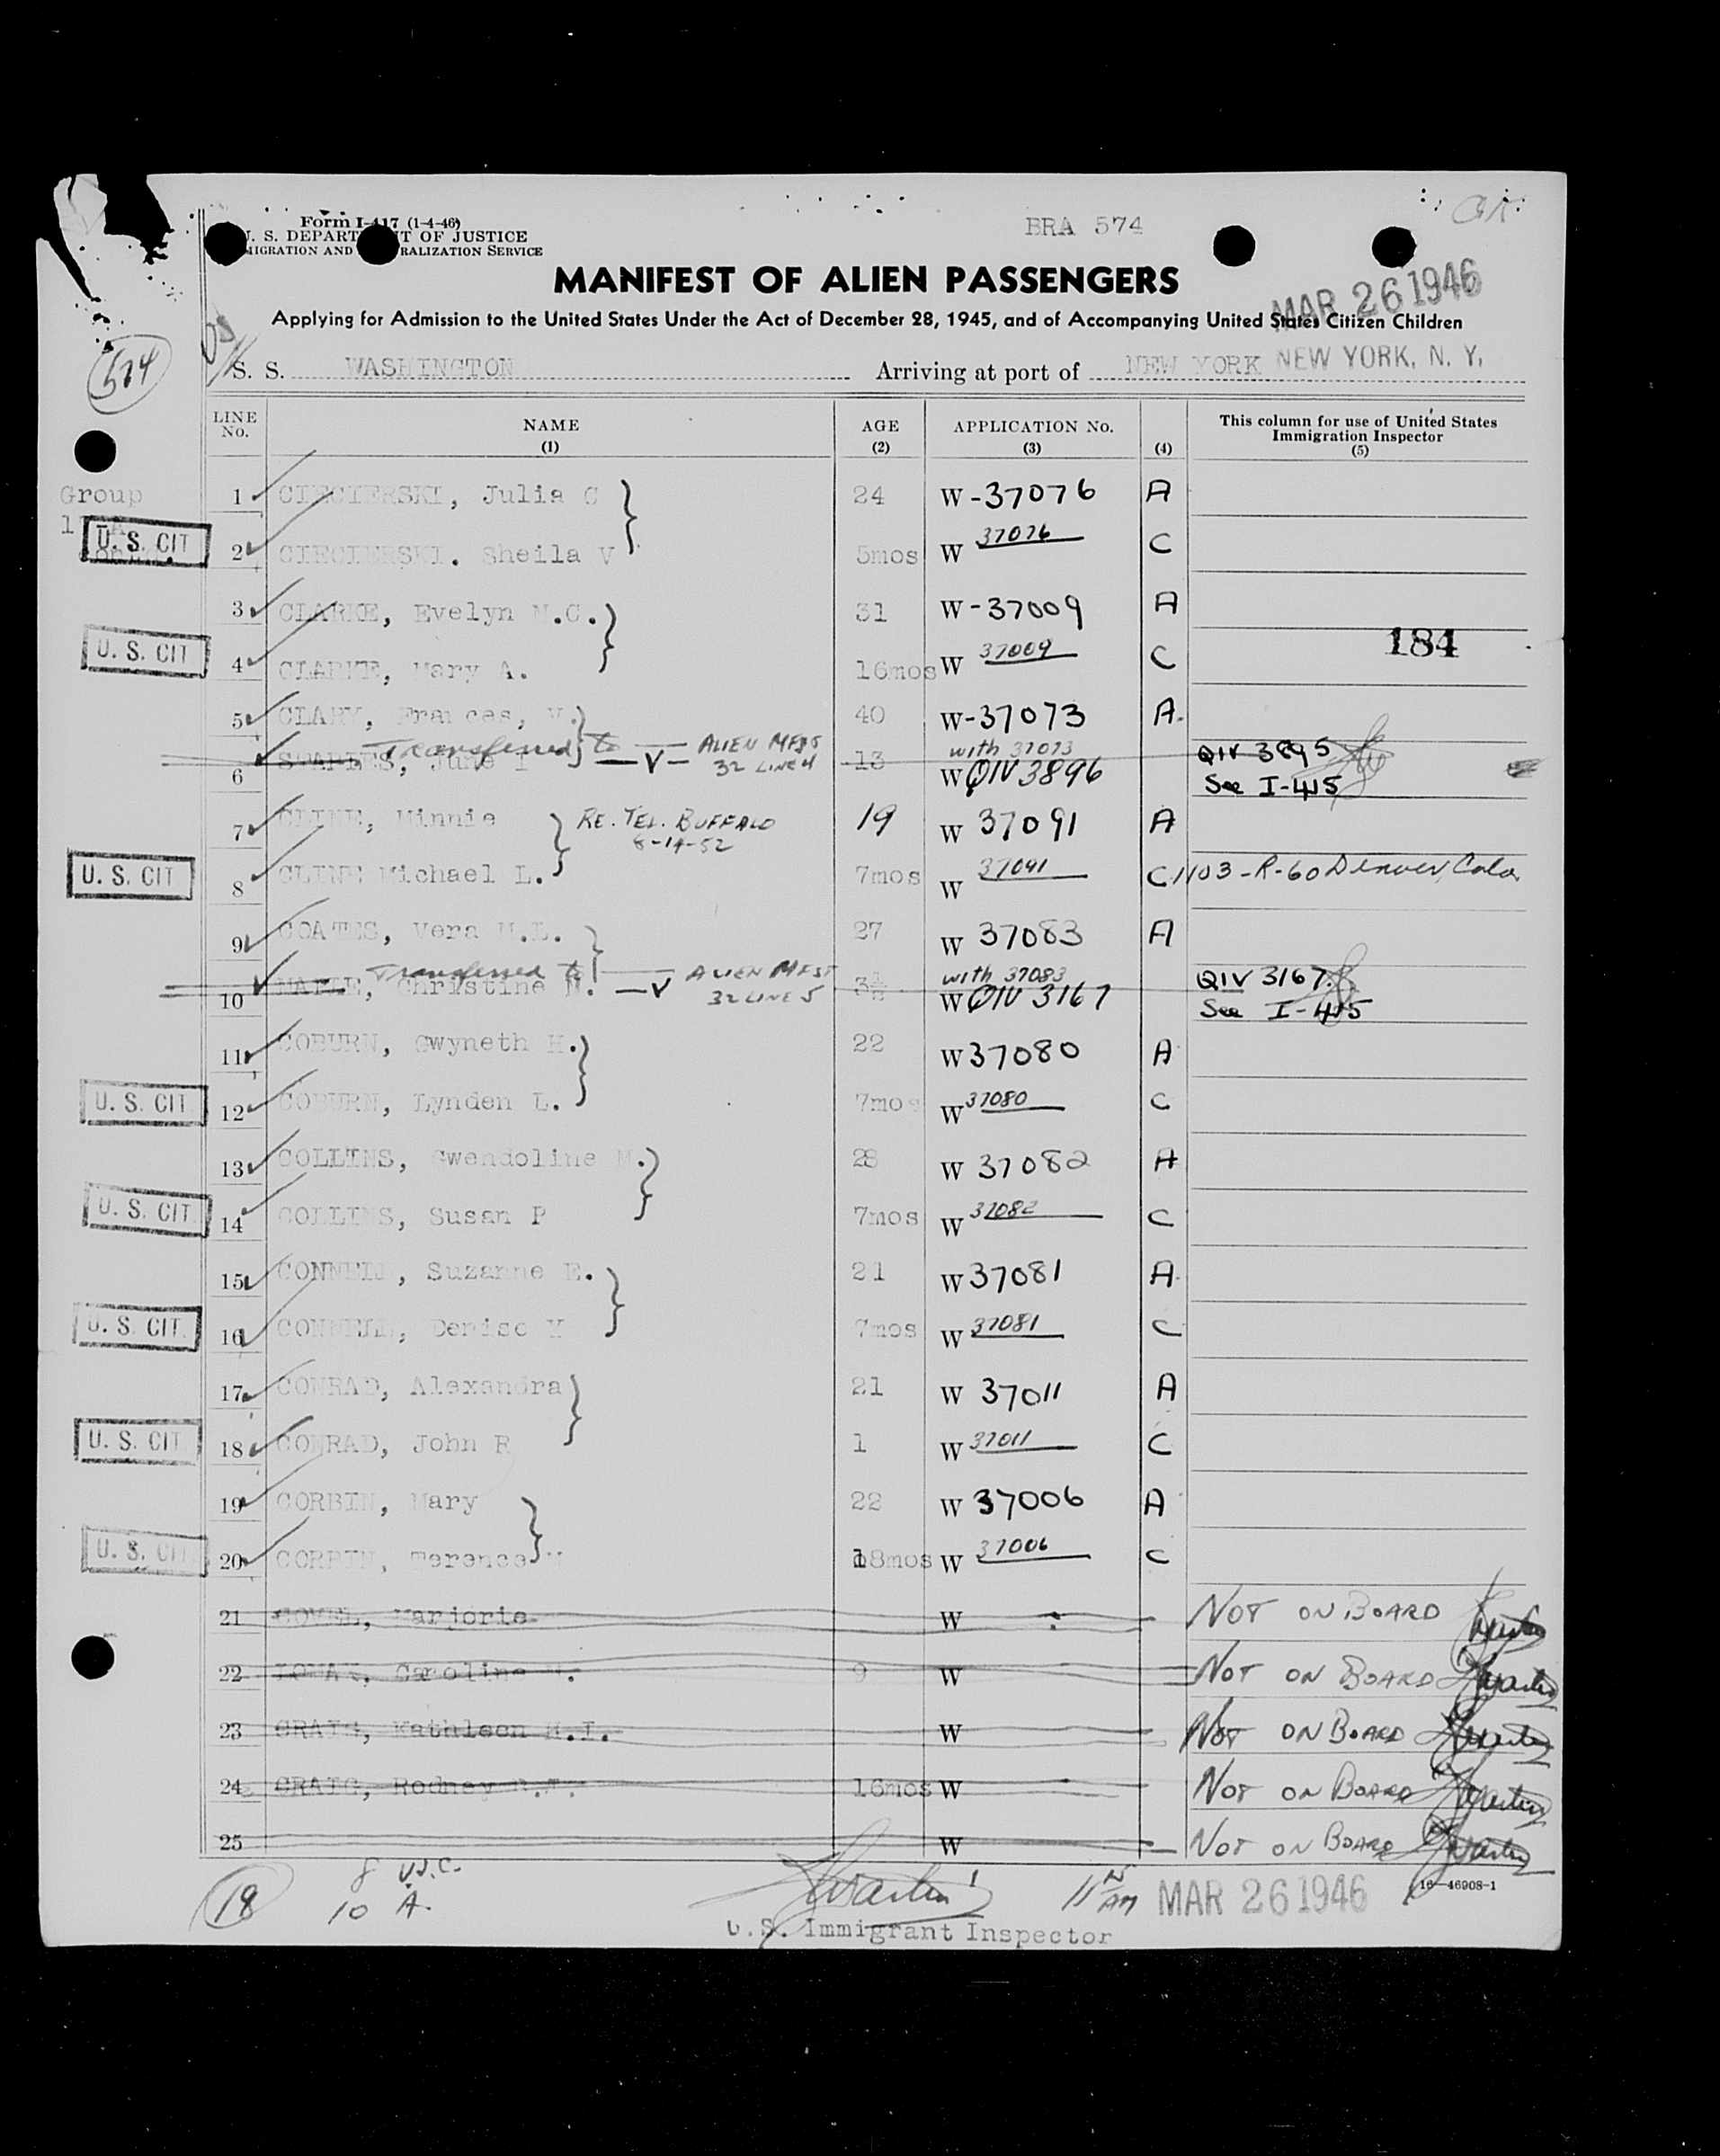 Form I-417 (1-4-46)
U. S. DEPARTMENT OF JUSTICE
IMMIGRATION AND NATURALIZATION SERVICE
BRA 574
MANIFEST OF ALIEN PASSENGERS
MAR 26 1946
Applying for Admission to the United States Under the Act of December 28, 1945, and of Accompanying United States Citizen Children
574
S. S. WASHINGTON Arriving at port of NEW YORK NEW YORK, N. Y.
LINE No. NAME (1) AGE (2) APPLICATION No. (3) (4) This column for use of United States Immigration Inspector (5)
Group
1 CIECIERSKI, Julia C 24 W-37076 A
U. S. CIT 2 CIECIERSKI. Sheila V 5mos W 37076 C
3 CLARKE, Evelyn M.C. 31 W-37009 A
184
U. S. CIT 4 CLARKE, Mary A. 16mos W 37009 C
5 CLARY, Frances, V. 40 W-37073 A.
Transferred to — ALIEN MFST with 37073 QIV 3895
6 June 32 LINE 4 13 W QIV 3896 See I-415
7 CLINE, Minnie RE. TEL. BUFFALO 19 W 37091 A
8-14-52
U. S. CIT 8 CLINE Michael L. 7mos W 37091 C 1103-R-60 Denver, Colo.
9 COATES, Vera 27 W 37083 A
Transferred to — ALIEN MFST with 37083 QIV 3167
10 Christine M. — V 32 LINE 5 3½ W QIV 3167 See I-415
11 COBURN, Gwyneth H. 22 W 37080 A
U. S. CIT 12 COBURN, Lynden L. 7mos W 37080 C
13 COLLINS, Gwendoline M. 28 W 37082 A
U. S. CIT 14 COLLINS, Susan P 7mos W 37082 C
15 CONNELL, Suzanne E. 21 W 37081 A.
U. S. CIT 16 CONNELL, Denise 7mos W 37081 C
17 CONRAD, Alexandra 21 W 37011 A
U. S. CIT 18 CONRAD, John R 1 W 37011 C
19 CORBIN, Mary 22 W 37006 A
U. S. CIT 20 CORBIN, Terence 18mos W 37006 C
21 Marjorie W NOT ON BOARD
22 Caroline 9 W NOT ON BOARD
23 CRAIG, Kathleen M.I. W NOT ON BOARD
24 CRAIG, Rodney 16mos W NOT ON BOARD
25 W NOT ON BOARD
8 U.S.C.
18 10 A. 11 AM MAR 26 1946 16—46908-1
U.S. Immigrant Inspector